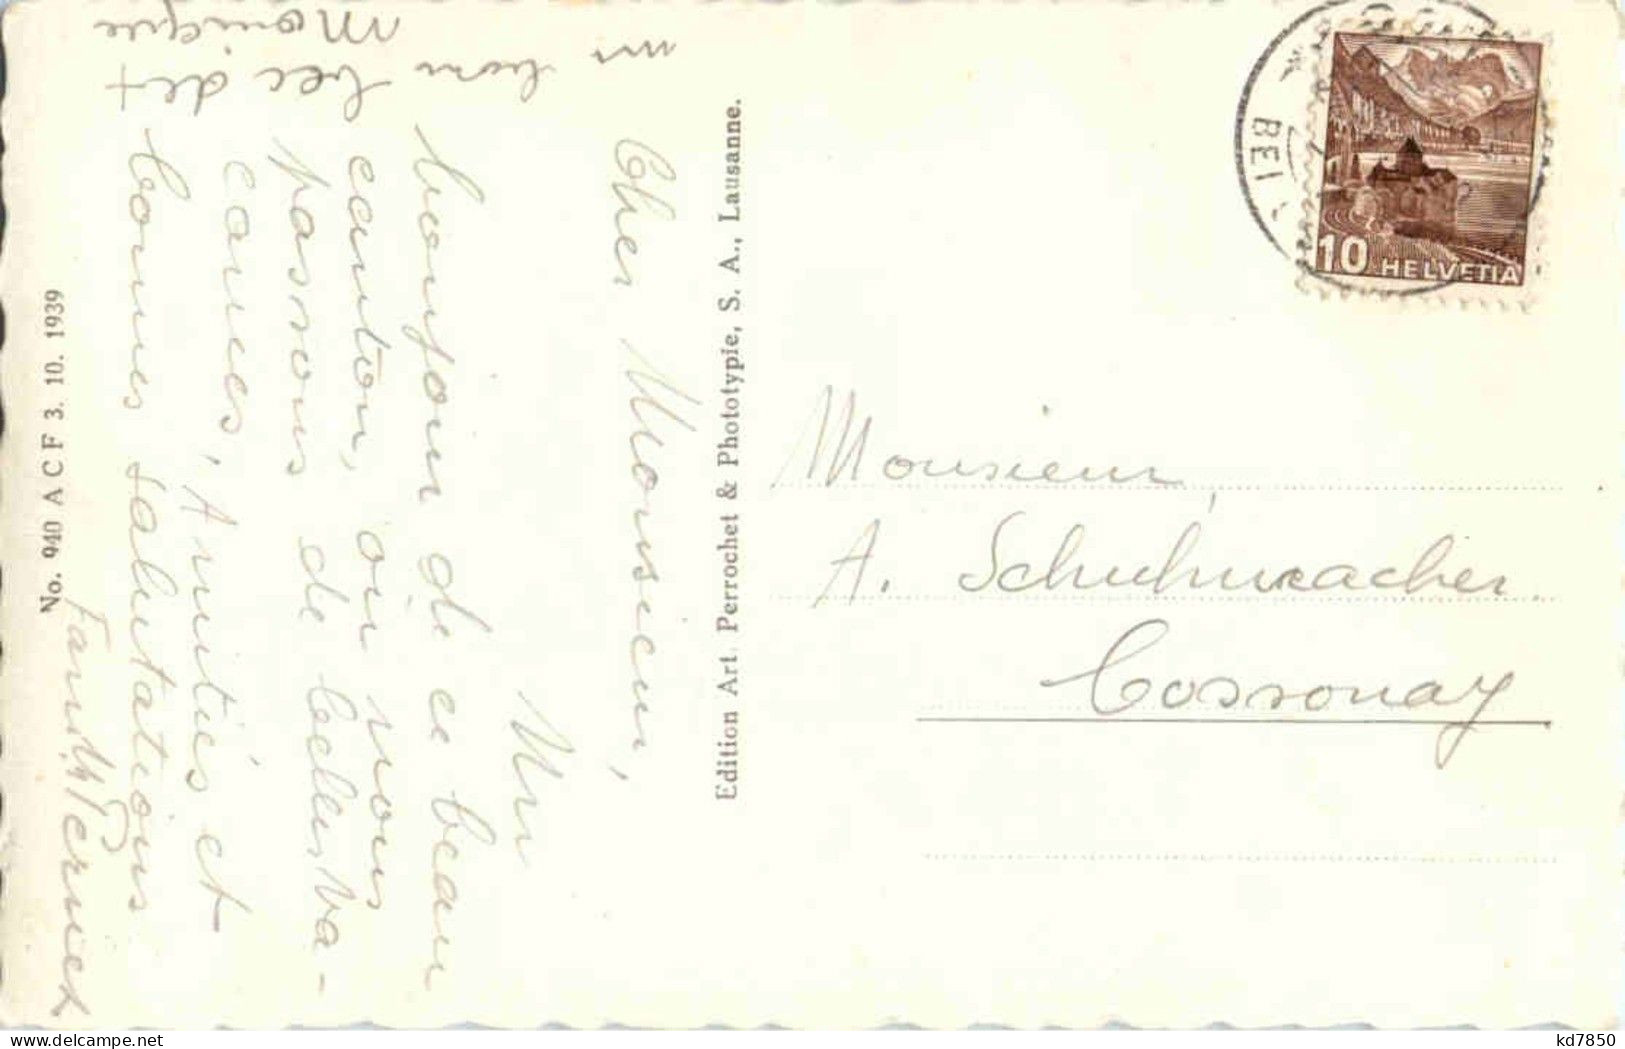 Cher Monsieur,
Un
bonjour de ce beau
canton, où nous
passons de belles va-
cances, Amitiés et
bonnes salutations
Fam.
un bon bec de
Monique
No. 940 A C F 3. 10. 1939
Edition Art Perrochet & Phototypie, S. A., Lausanne.
BEI
10 HELVETIA
Monsieur,
A. Schuhmacher
Cossonay
delcampe.net
kd7850